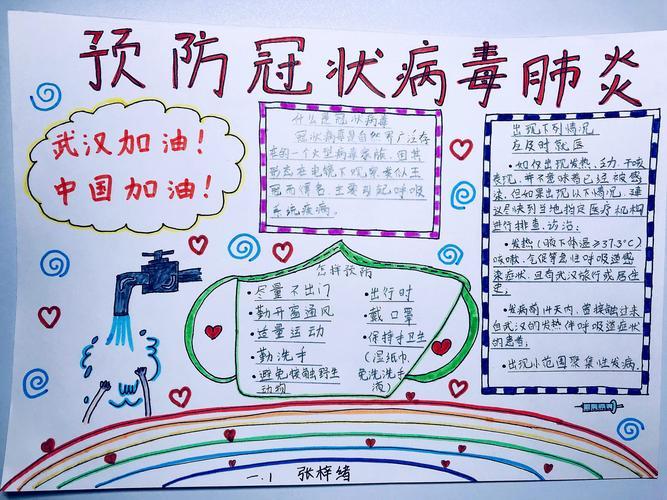 预防冠状病毒肺炎
武汉加油!
中国加油!
什么是冠状病毒
冠状病毒是自然界广泛存
在的一个大型病毒家族,因其
形态在电镜下观察类似王
冠而得名,主要引起呼吸
系统疾病。
怎样预防
·尽量不出门
·勤开窗通风
·适量运动
·勤洗手
·避免接触野生
动物
·出行时
·戴口罩
·保持手卫生
(湿纸巾、
免洗洗手
液)
出现下列情况
应及时就医
·如仅出现发热、乏力、干咳
表现,并不意味着已经被感
染,但如果出现以下情况,建
议尽快到当地指定医疗机构
进行排查、诊治:
·发热(腋下体温≥37.3℃)
咳嗽、气促等急性呼吸道感
染症状,且有武汉旅行或居住
史;
·发病前14天内,密接触过来
自武汉的发热伴呼吸道症状
的患者;
·出现小范围聚集性发病。
一.1 张梓绪